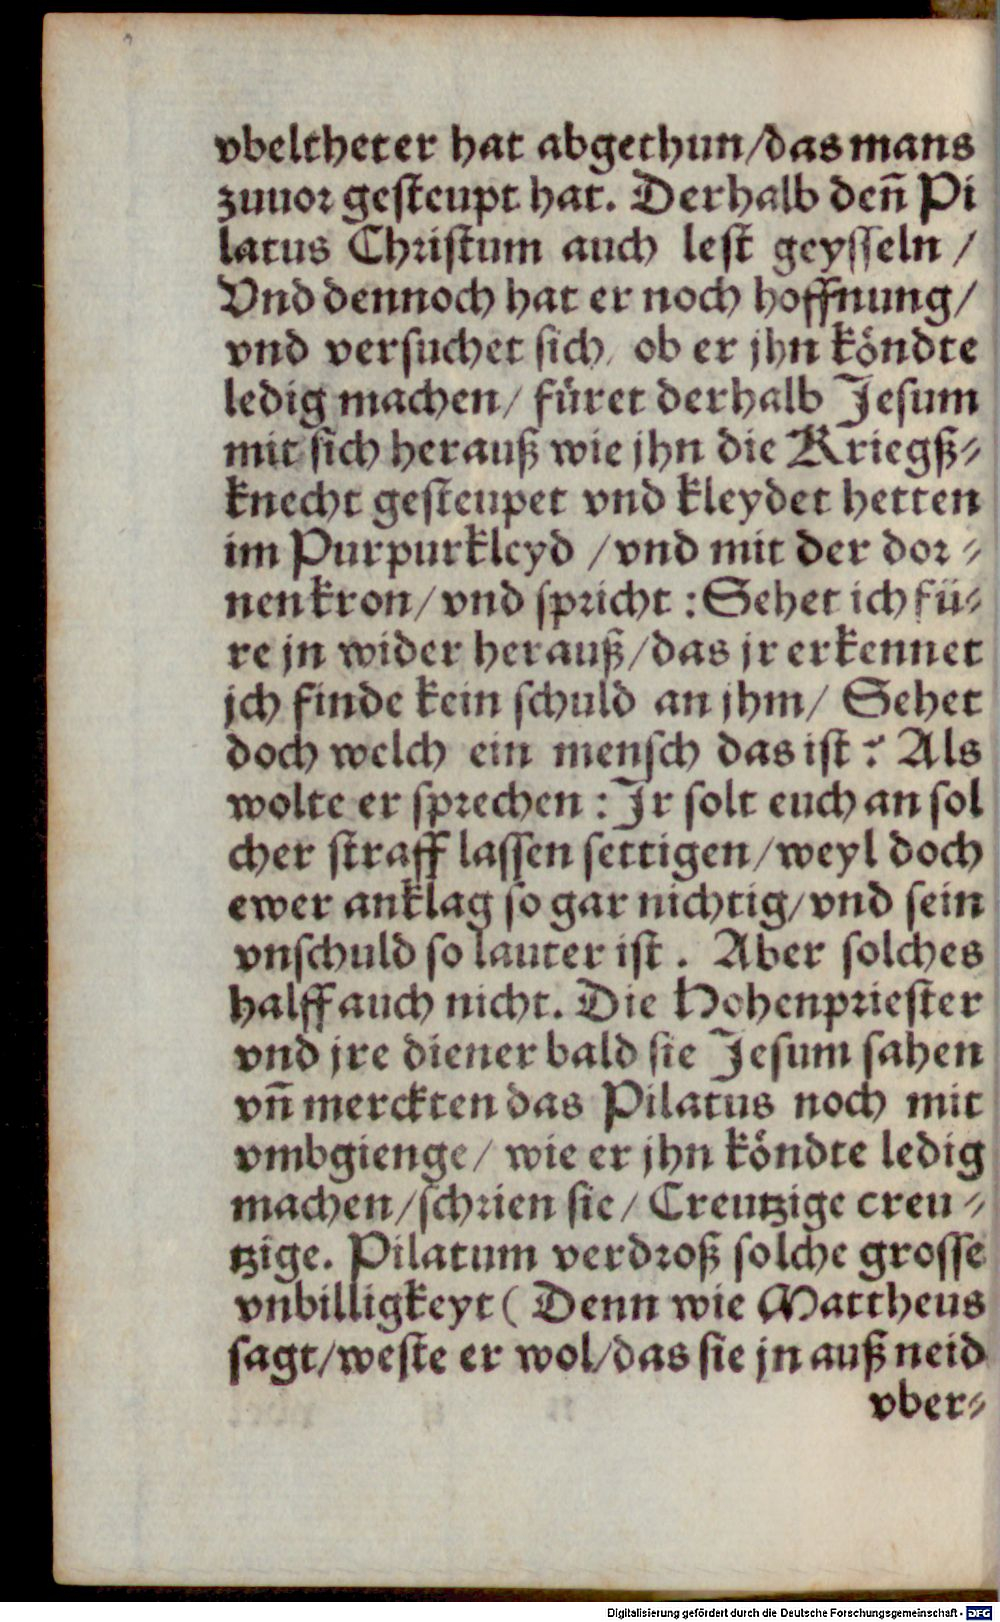 vbeltheter hat abgethun/das mans
zuuor gesteupt hat. Derhalb deñ Pi
latus Christum auch lest geysseln /
Vnd dennoch hat er noch hoffnung/
vnd versuchet sich/ ob er jhn köndte
ledig machen/ füret derhalb Jesum
mit sich herauß wie jhn die Kriegß⸗
knecht gesteupet vnd kleydet hetten
im Purpurkleyd /vnd mit der dor⸗
nenkron/vnd spricht : Sehet ich fü⸗
re jn wider herauß/das jr erkennet
jch finde kein schuld an jhm/ Sehet
doch welch ein mensch das ist ? Als
wolte er sprechen : Jr solt euch an sol
cher straff lassen settigen/weyl doch
ewer anklag so gar nichtig/vnd sein
vnschuld so lauter ist . Aber solches
halff auch nicht. Die Hohenpriester
vnd jre diener bald sie Jesum sahen
vñ merckten das Pilatus noch mit
vmbgienge/ wie er jhn köndte ledig
machen/schrien sie/ Creutzige creu⸗
tzige. Pilatum verdroß solche grosse
vnbilligkeyt ( Denn wie Mattheus
sagt/weste er wol/das sie jn auß neid
vber⸗
Digitalisierung gefördert durch die Deutsche Forschungsgemeinschaft - DFG